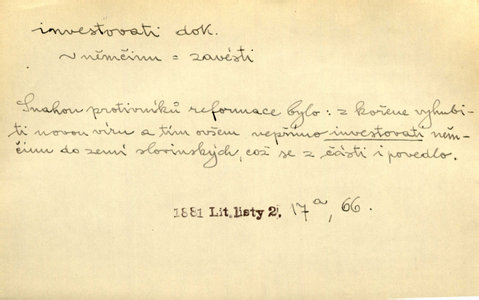 investovati dok.
~ němčinu = zavésti
Snahou protivníků reformace bylo: z kořene vyhubi-
ti novou víru a tím ovšem nepřímo investovati něm-
činu do zemí slovinských, což se z části i povedlo.
1881 Lit. listy 2, 17a, 66.